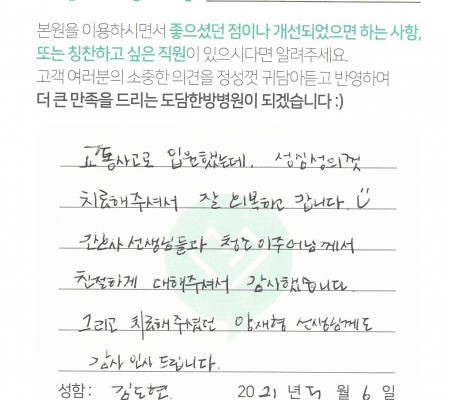 본원을 이용하시면서 좋으셨던 점이나 개선되었으면 하는 사항,
또는 칭찬하고 싶은 직원이 있으시다면 알려주세요.
고객 여러분의 소중한 의견을 정성껏 귀담아듣고 반영하여
더 큰 만족을 드리는 도담한방병원이 되겠습니다 :)
교통사고로 입원했는데, 성심성의껏
치료해주셔서 잘 회복하고 갑니다.
간호사 선생님들과 청소 이주머님께서
친절하게 대해주셔서 감사했습니다.
그리고 치료해주셨던 양재형 선생님께도
감사 인사 드립니다.
성함: 김도현. 2021년 월 6일